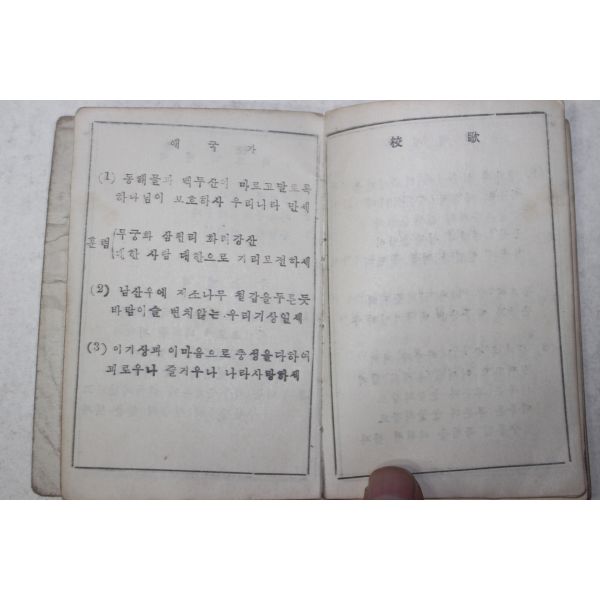 애 국 가
(1) 동해물과 백두산이 마르고말도록
하나님이 보호하사 우리나라 만세
후렴 무궁화 삼천리 화려강산
대한 사람 대한으로 기리보전하세
(2) 남산우에 저소나무 철갑을두른듯
바람이슬 변치않는 우리기상일세
(3) 이기상과 이마음으로 충성을다하여
괴로우나 즐거우나 나라사랑하세
校 歌